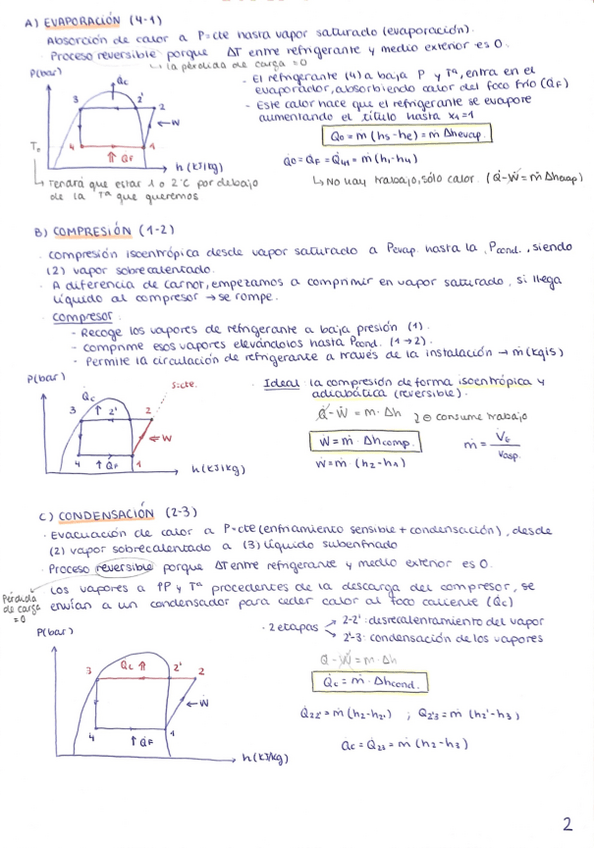 A) EVAPORACIÓN (4-1)
Absorción de calor a P=cte hasta vapor saturado (evaporación).
· Proceso reversible porque ΔT entre refrigerante y medio exterior es 0.
↳ la pérdida de carga = 0
P(bar)
Qc
3
2'
2
← W
T₀
4
1
⇑ QF
h (kJ/kg)
↳ Tendrá que estar 1 o 2°C por debajo
de la Tª que queremos
- El refrigerante (4) a baja P y Tª, entra en el
evaporador, absorbiendo calor del foco frío (Q̇F)
- Este calor hace que el refrigerante se evapore
aumentando el título hasta x₁=1
Q̇o = ṁ (hs - he) = ṁ Δhevap.
Q̇o = Q̇F = Q̇41 = ṁ (h1 - h4)
↳ No hay trabajo, sólo calor. (Q̇ - Ẇ = ṁ Δhevap)
B) COMPRESIÓN (1-2)
· Compresión isoentrópica desde vapor saturado a Pevap. hasta la Pcond., siendo
(2) vapor sobrecalentado.
· A diferencia de Carnot, empezamos a comprimir en vapor saturado, si llega
líquido al compresor → se rompe.
· Compresor.
- Recoge los vapores de refrigerante a baja presión (1).
- Comprime esos vapores elevándolos hasta Pcond. (1→2).
- Permite la circulación de refrigerante a través de la instalación → ṁ (kg/s)
P(bar)
Qc
s:cte.
3
↑
2'
2
← W
4
↑ Q̇F
1
h (kJ/kg)
Ideal: la compresión de forma isoentrópica y
adiabática (reversible).
Q̇ - Ẇ = ṁ · Δh
⊖ consume trabajo
Ẇ = ṁ · Δhcomp.
Ẇ = ṁ (h2 - h1)
C) CONDENSACIÓN (2-3)
· Evacuación de calor a P=cte (enfriamiento sensible + condensación), desde
(2) vapor sobrecalentado a (3) líquido subenfriado
· Proceso reversible porque ΔT entre refrigerante y medio exterior es 0.
Pérdida
de carga
=0
Los vapores a ↑P y Tª procedentes de la descarga del compresor, se
envían a un condensador para ceder calor al foco caliente (Q̇c)
P(bar)
3
Qc ⇑
2'
2
← Ẇ
4
↑ Q̇F
1
h (kJ/kg)
· 2 etapas
→ 2-2': desrecalentamiento del vapor
→ 2'-3: condensación de los vapores
Q̇ - Ẇ = ṁ · Δh
Q̇c = ṁ · Δhcond.
Q̇22' = ṁ (h2 - h2') ; Q̇2'3 = ṁ (h2' - h3)
Q̇c = Q̇23 = ṁ (h2 - h3)
2